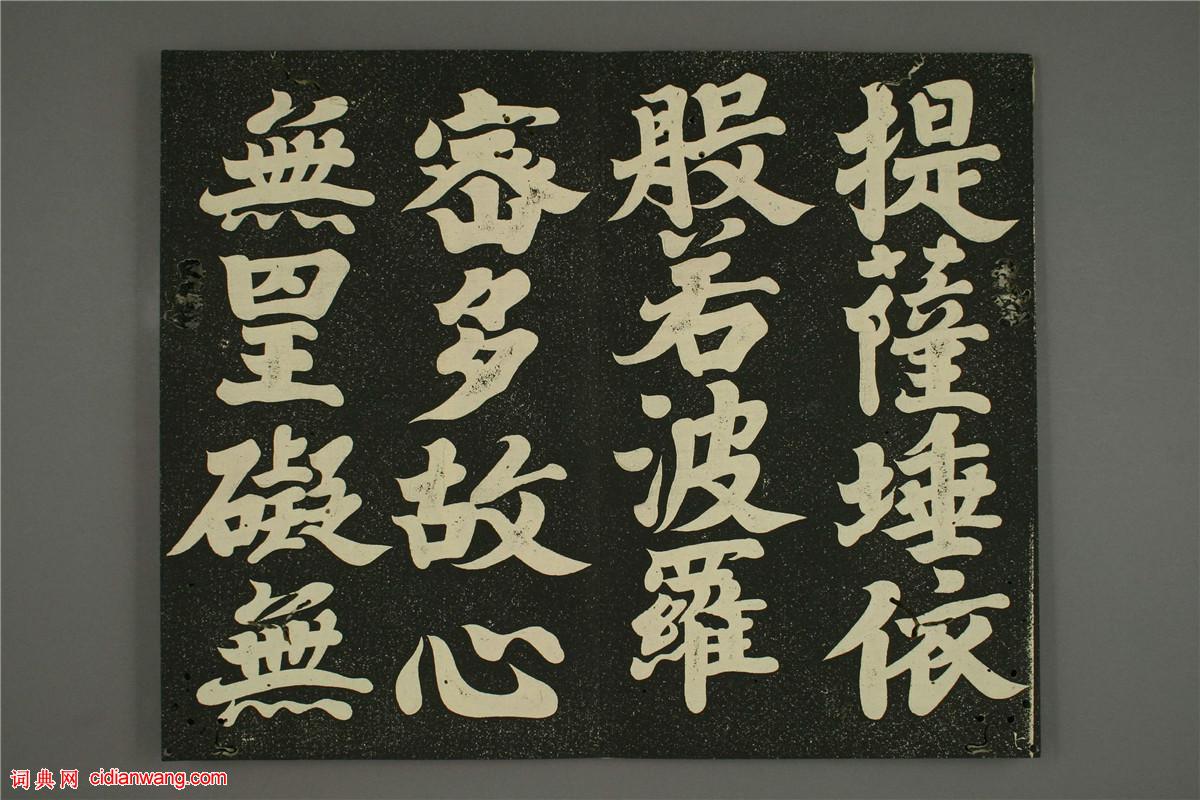 提薩埵依
般若波羅
蜜多故心
無罣礙無
词典网 cidianwang.com